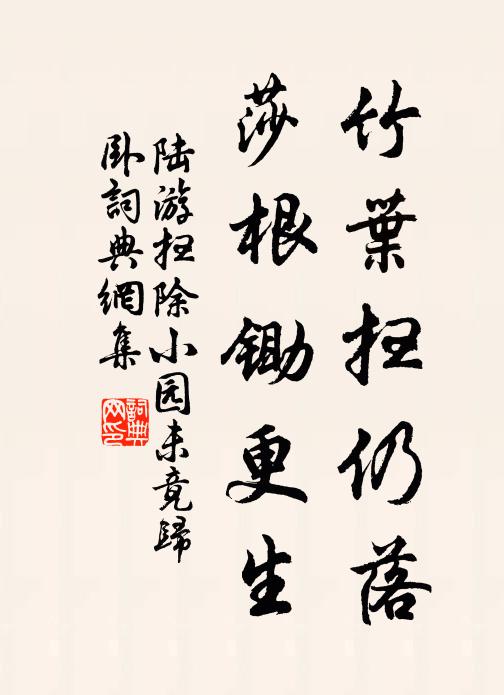 竹葉扫仍落
莎根鋤更生
陆游扫除小园未竟歸
卧詞典網集
詞典网印